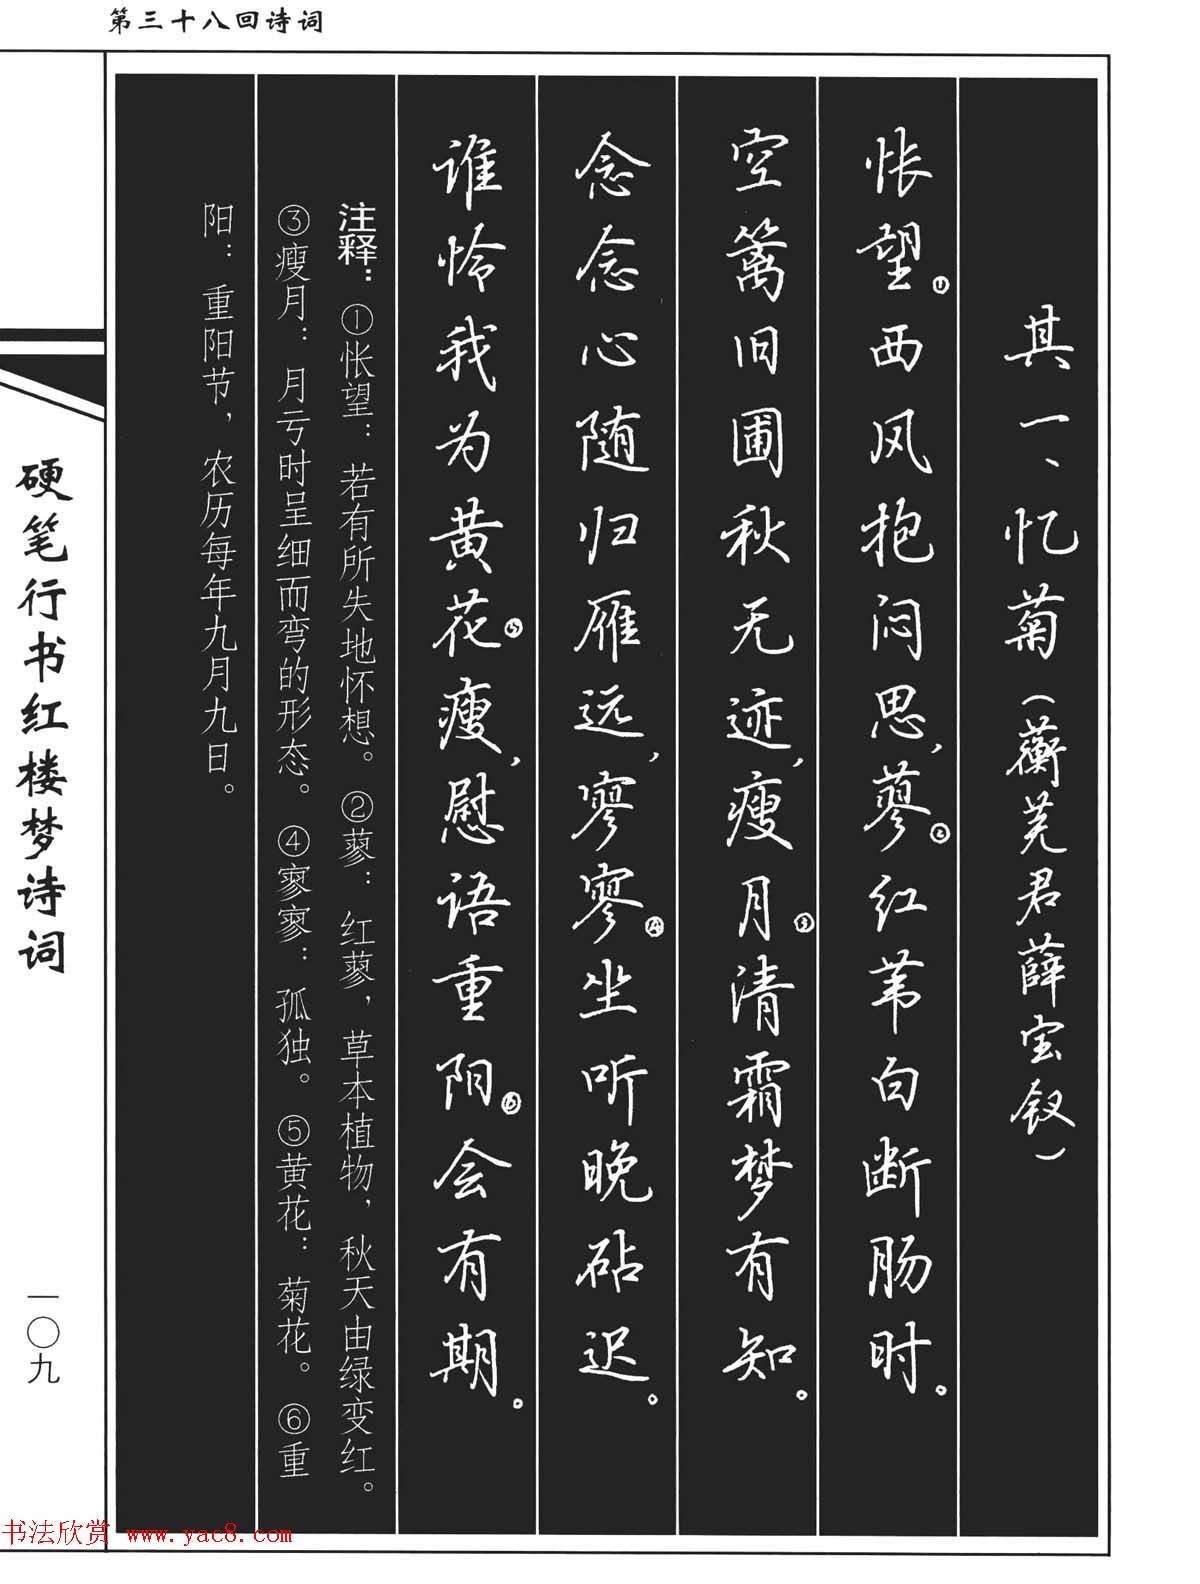 第三十八回诗词
其一、忆菊(蘅芜君薛宝钗)
怅望①西风抱闷思,蓼②红苇白断肠时。
空篱旧圃秋无迹,瘦月③清霜梦有知。
念念心随归雁远,寥寥④坐听晚砧迟。
谁怜我为黄花⑤瘦,慰语重阳⑥会有期。
注释:①怅望:若有所失地怀想。②蓼:红蓼,草本植物,秋天由绿变红。
③瘦月:月亏时呈细而弯的形态。④寥寥:孤独。⑤黄花:菊花。⑥重
阳:重阳节,农历每年九月九日。
硬笔行书红楼梦诗词
一〇九
书法欣赏 www.yac8.com